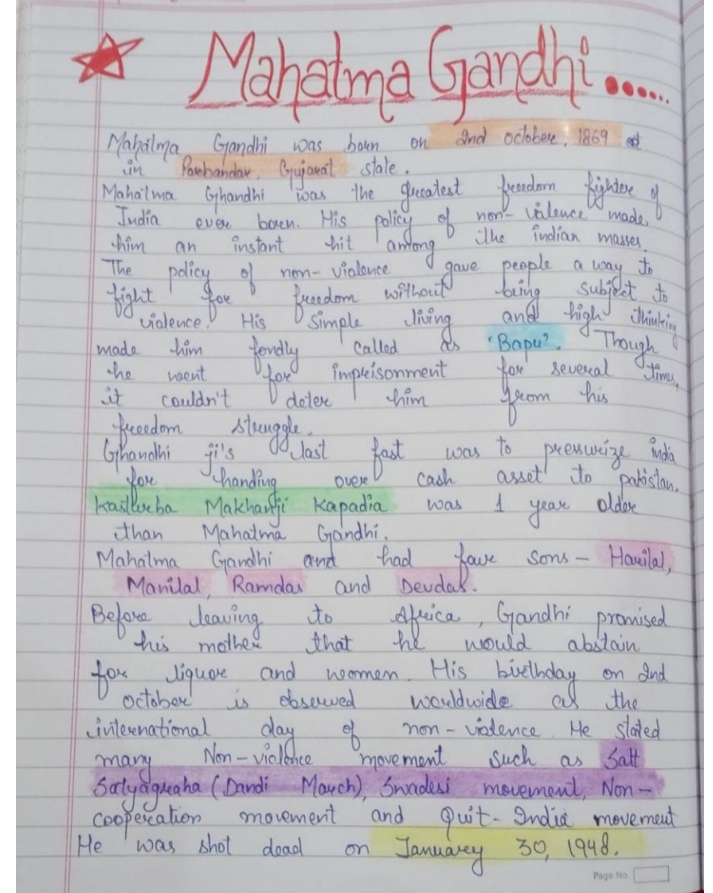 Mahatma Gandhi ......
Mahatma Gandhi was born on 2nd october, 1869 at
in Porbandar, Gujarat state.
Mahatma Ghandhi was the greatest freedom fighter of
India ever born. His policy of non-violence made
him an instant hit among the indian masses.
The policy of non-violence gave people a way to
fight for freedom without being subject to
violence. His Simple living and high thinking
made him fondly called as 'Bapu'. Though
he went for imprisonment for several times,
it couldn't deter him from his
freedom struggle.
Ghandhi ji's last fast was to pressurize india
for handing over cash asset to pakistan.
Kasturba Makhanji Kapadia was 1 year older
than Mahatma Gandhi.
Mahatma Gandhi and had four sons- Harilal,
Manilal, Ramdas and Devdas.
Before leaving to Africa, Gandhi promised
his mother that he would abstain
for liquor and women. His birthday on 2nd
october is observed worldwide as the
international day of non-violence. He stated
many Non-violence movement such as Salt
Satyagraha (Dandi March), Swadesi movement, Non-
cooperation movement and Quit-India movement
He was shot dead on January 30, 1948.
Page No.